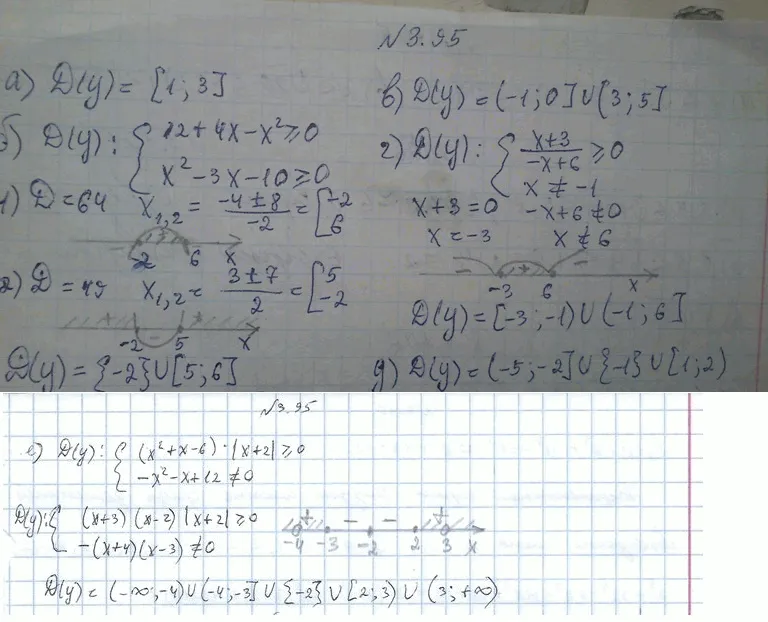 N3.95
а) D(y) = [1; 3]
б) D(y): { 12 + 4x - x² ≥ 0
x² - 3x - 10 ≥ 0
1) D = 64 x₁,₂ = (-4 ± 8)/(-2) = [ -2
6
-2 6 x
2) D = 49 x₁,₂ = (3 ± 7)/2 = [ 5
-2
-2 5 x
D(y) = {-2} ∪ [5; 6]
в) D(y) = (-1; 0] ∪ [3; 5]
г) D(y): { (x+3)/(-x+6) ≥ 0
x ≠ -1
x + 3 = 0 -x + 6 ≠ 0
x = -3 x ≠ 6
- + -
-3 6 x
D(y) = [-3; -1) ∪ (-1; 6]
д) D(y) = (-5; -2] ∪ {-1} ∪ [1; 2)
N3.95
е) D(y): { (x² + x - 6) · |x + 2| ≥ 0
-x² - x + 12 ≠ 0
D(y): { (x + 3)(x - 2)|x + 2| ≥ 0
-(x + 4)(x - 3) ≠ 0
+ - - +
-4 -3 -2 2 3 x
D(y) = (-∞; -4) ∪ (-4; -3] ∪ {-2} ∪ [2; 3) ∪ (3; +∞)